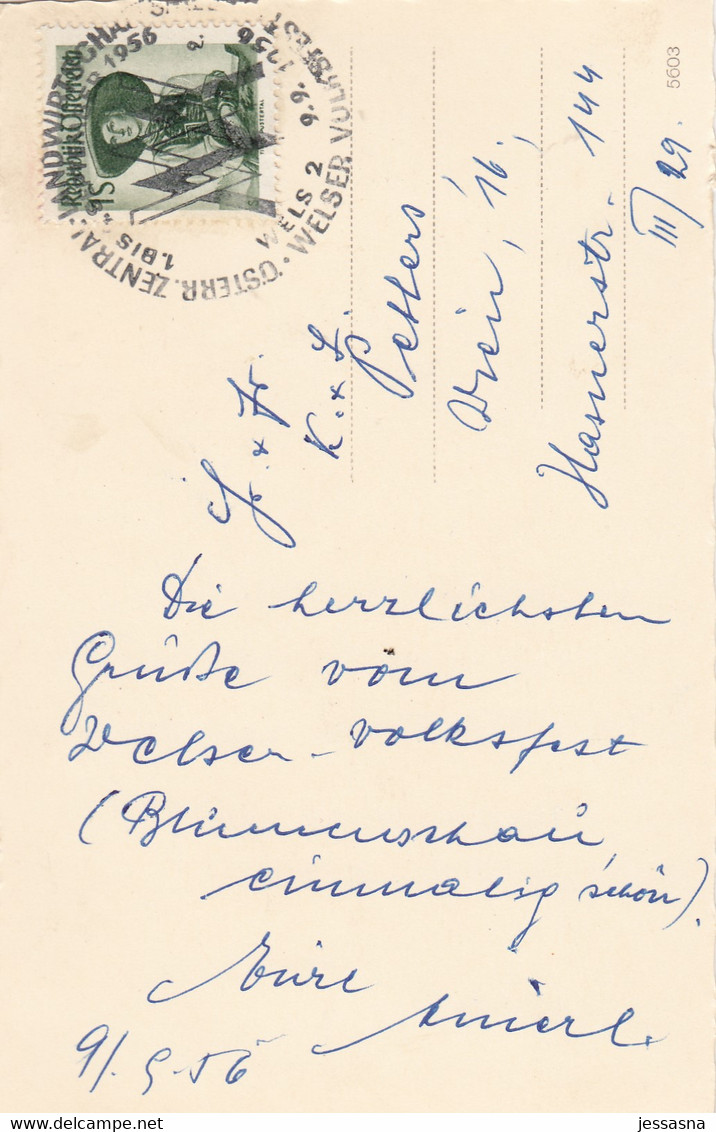 Republik Österreich
1S
ÖSTERR. ZENTRAL-LANDWIRTSCHAFTS
1. BIS
1956
WELS 2
9.9.1956
WELSER VOLKSFEST
5603
H. & Fr.
K. & L.
Peklers
Wien, 16.,
Hasnerstr. 144
III/29.
Die herzlichsten
Grüße vom
Welser-Volksfest
(Blumenschau
einmalig schön).
Eure
9/.9.56
jessasna